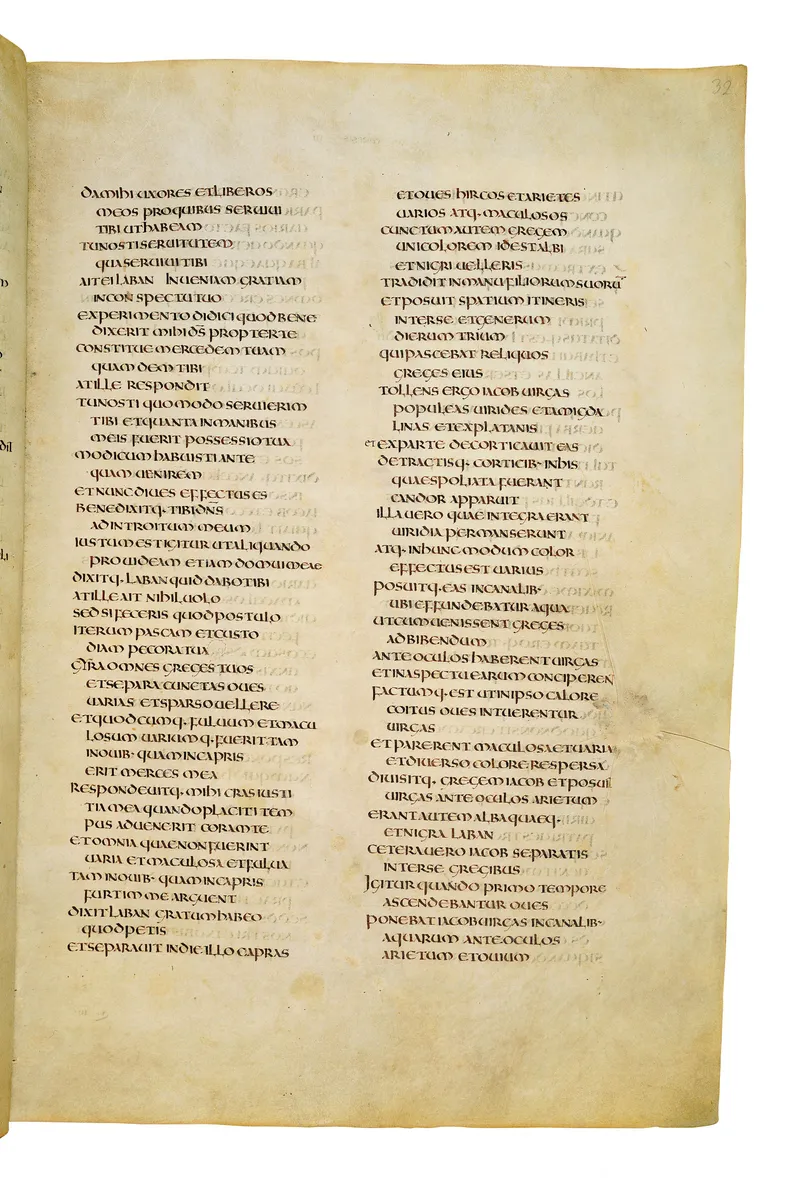 32
DA MIHI UXORES ET LIBEROS
MEOS PRO QUIBUS SERUIUI
TIBI UT HABEAM
TU NOSTI SERUITUTEM
QUA SERUIUI TIBI
AIT EI LABAN INUENIAM GRATIAM
IN CONSPECTU TUO
EXPERIMENTO DIDICI QUOD BENE
DIXERIT MIHI D̅S̅ PROPTER TE
CONSTITUE MERCEDEM TUAM
QUAM DEM TIBI
AT ILLE RESPONDIT
TU NOSTI QUOMODO SERUIERIM
TIBI ET QUANTA IN MANIBUS
MEIS FUERIT POSSESSIO TUA
MODICUM HABUISTI ANTE
QUAM UENIREM
ET NUNC DIUES EFFECTUS ES
BENEDIXITQ· TIBI D̅N̅S̅
AD INTROITUM MEUM
IUSTUM EST IGITUR UT ALIQUANDO
PROUIDEAM ETIAM DOMUI MEAE
DIXITQ· LABAN QUID DABO TIBI
AT ILLE AIT NIHIL UOLO
SED SI FECERIS QUOD POSTULO
ITERUM PASCAM ET CUSTO
DIAM PECORA TUA
GYRA OMNES GREGES TUOS
ET SEPARA CUNCTAS OUES
UARIAS ET SPARSO UELLERE
ET QUODCUMQ· FULUUM ET MACU
LOSUM UARIUMQ· FUERIT TAM
IN OUIB· QUAM IN CAPRIS
ERIT MERCES MEA
RESPONDEUITQ· MIHI CRAS IUSTI
TIA MEA QUANDO PLACITI TEM
PUS ADUENERIT CORAM TE
ET OMNIA QUAE NON FUERINT
UARIA ET MACULOSA ET FULUA
TAM IN OUIB· QUAM IN CAPRIS
FURTI ME ARGUENT
DIXIT LABAN GRATUM HABEO
QUOD PETIS
ET SEPARAUIT IN DIE ILLO CAPRAS
ET OUES HIRCOS ET ARIETES
UARIOS ATQ· MACULOSOS
CUNCTUM AUTEM GREGEM
UNICOLOREM ID EST ALBI
ET NIGRI UELLERIS
TRADIDIT IN MANU FILIORUM SUORU̅
ET POSUIT SPATIUM ITINERIS
INTER SE ET GENERUM
DIERUM TRIUM
QUI PASCEBAT RELIQUOS
GREGES EIUS
TOLLENS ERGO IACOB UIRGAS
POPULEAS UIRIDES ET AMIGDA
LINAS ET EX PLATANIS
et EX PARTE DECORTICAUIT EAS
DETRACTISQ· CORTICIB· IN HIS
QUAE SPOLIATA FUERANT
CANDOR APPARUIT
ILLA UERO QUAE INTEGRA ERANT
UIRIDIA PERMANSERUNT
ATQ· IN HUNC MODUM COLOR
EFFECTUS EST UARIUS
POSUITQ· EAS IN CANALIB·
UBI EFFUNDEBATUR AQUA
UT CUM UENISSENT GREGES
AD BIBENDUM
ANTE OCULOS HABERENT UIRGAS
ET IN ASPECTU EARUM CONCIPEREN
FACTUMQ· EST UT IN IPSO CALORE
COITUS OUES INTUERENTUR
UIRGAS
ET PARERENT MACULOSA ET UARIA
ET DIUERSO COLORE RESPERSA
DIUISITQ· GREGEM IACOB ET POSUIT
UIRGAS ANTE OCULOS ARIETUM
ERANT AUTEM ALBA QUAEQ·
ET NIGRA LABAN
CETERA UERO IACOB SEPARATIS
INTER SE GREGIBUS
IGITUR QUANDO PRIMO TEMPORE
ASCENDEBANTUR OUES
PONEBAT IACOB UIRGAS IN CANALIB·
AQUARUM ANTE OCULOS
ARIETUM ET OUIUM